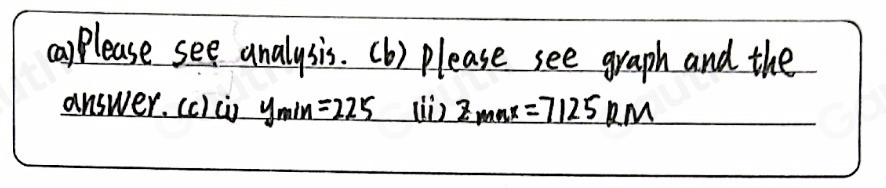 (a) Please see analysis. (b) please see graph and the
answer. (c) (i) y min = 225 (ii) z max = 7125 RM